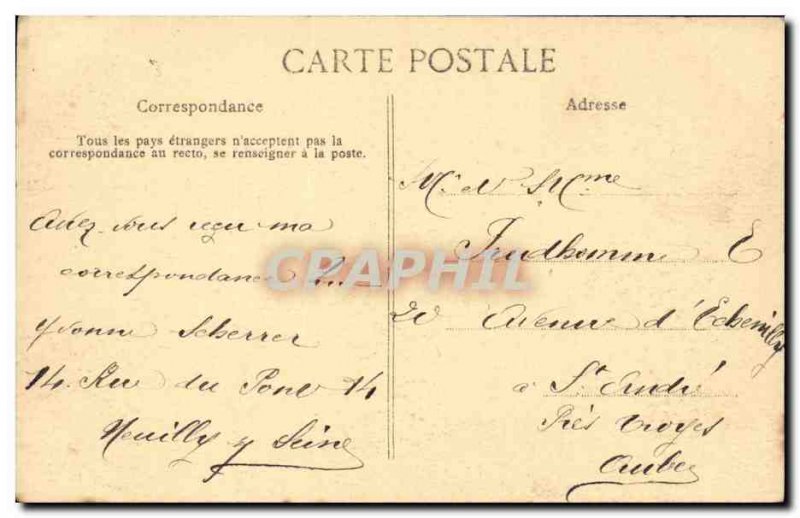 CARTE POSTALE
Correspondance
Tous les pays étrangers n'acceptent pas la
correspondance au recto, se renseigner à la poste.
Avez vous reçu ma
correspondance
Yvonne Scherrer
14. Rue du Pont 14
Neuilly s/ Seine
Adresse
Mr & Mme
Prudhomme E
20 Avenue d'Echenilly
a St André
Près Troyes
Aube
CPRAPHIL